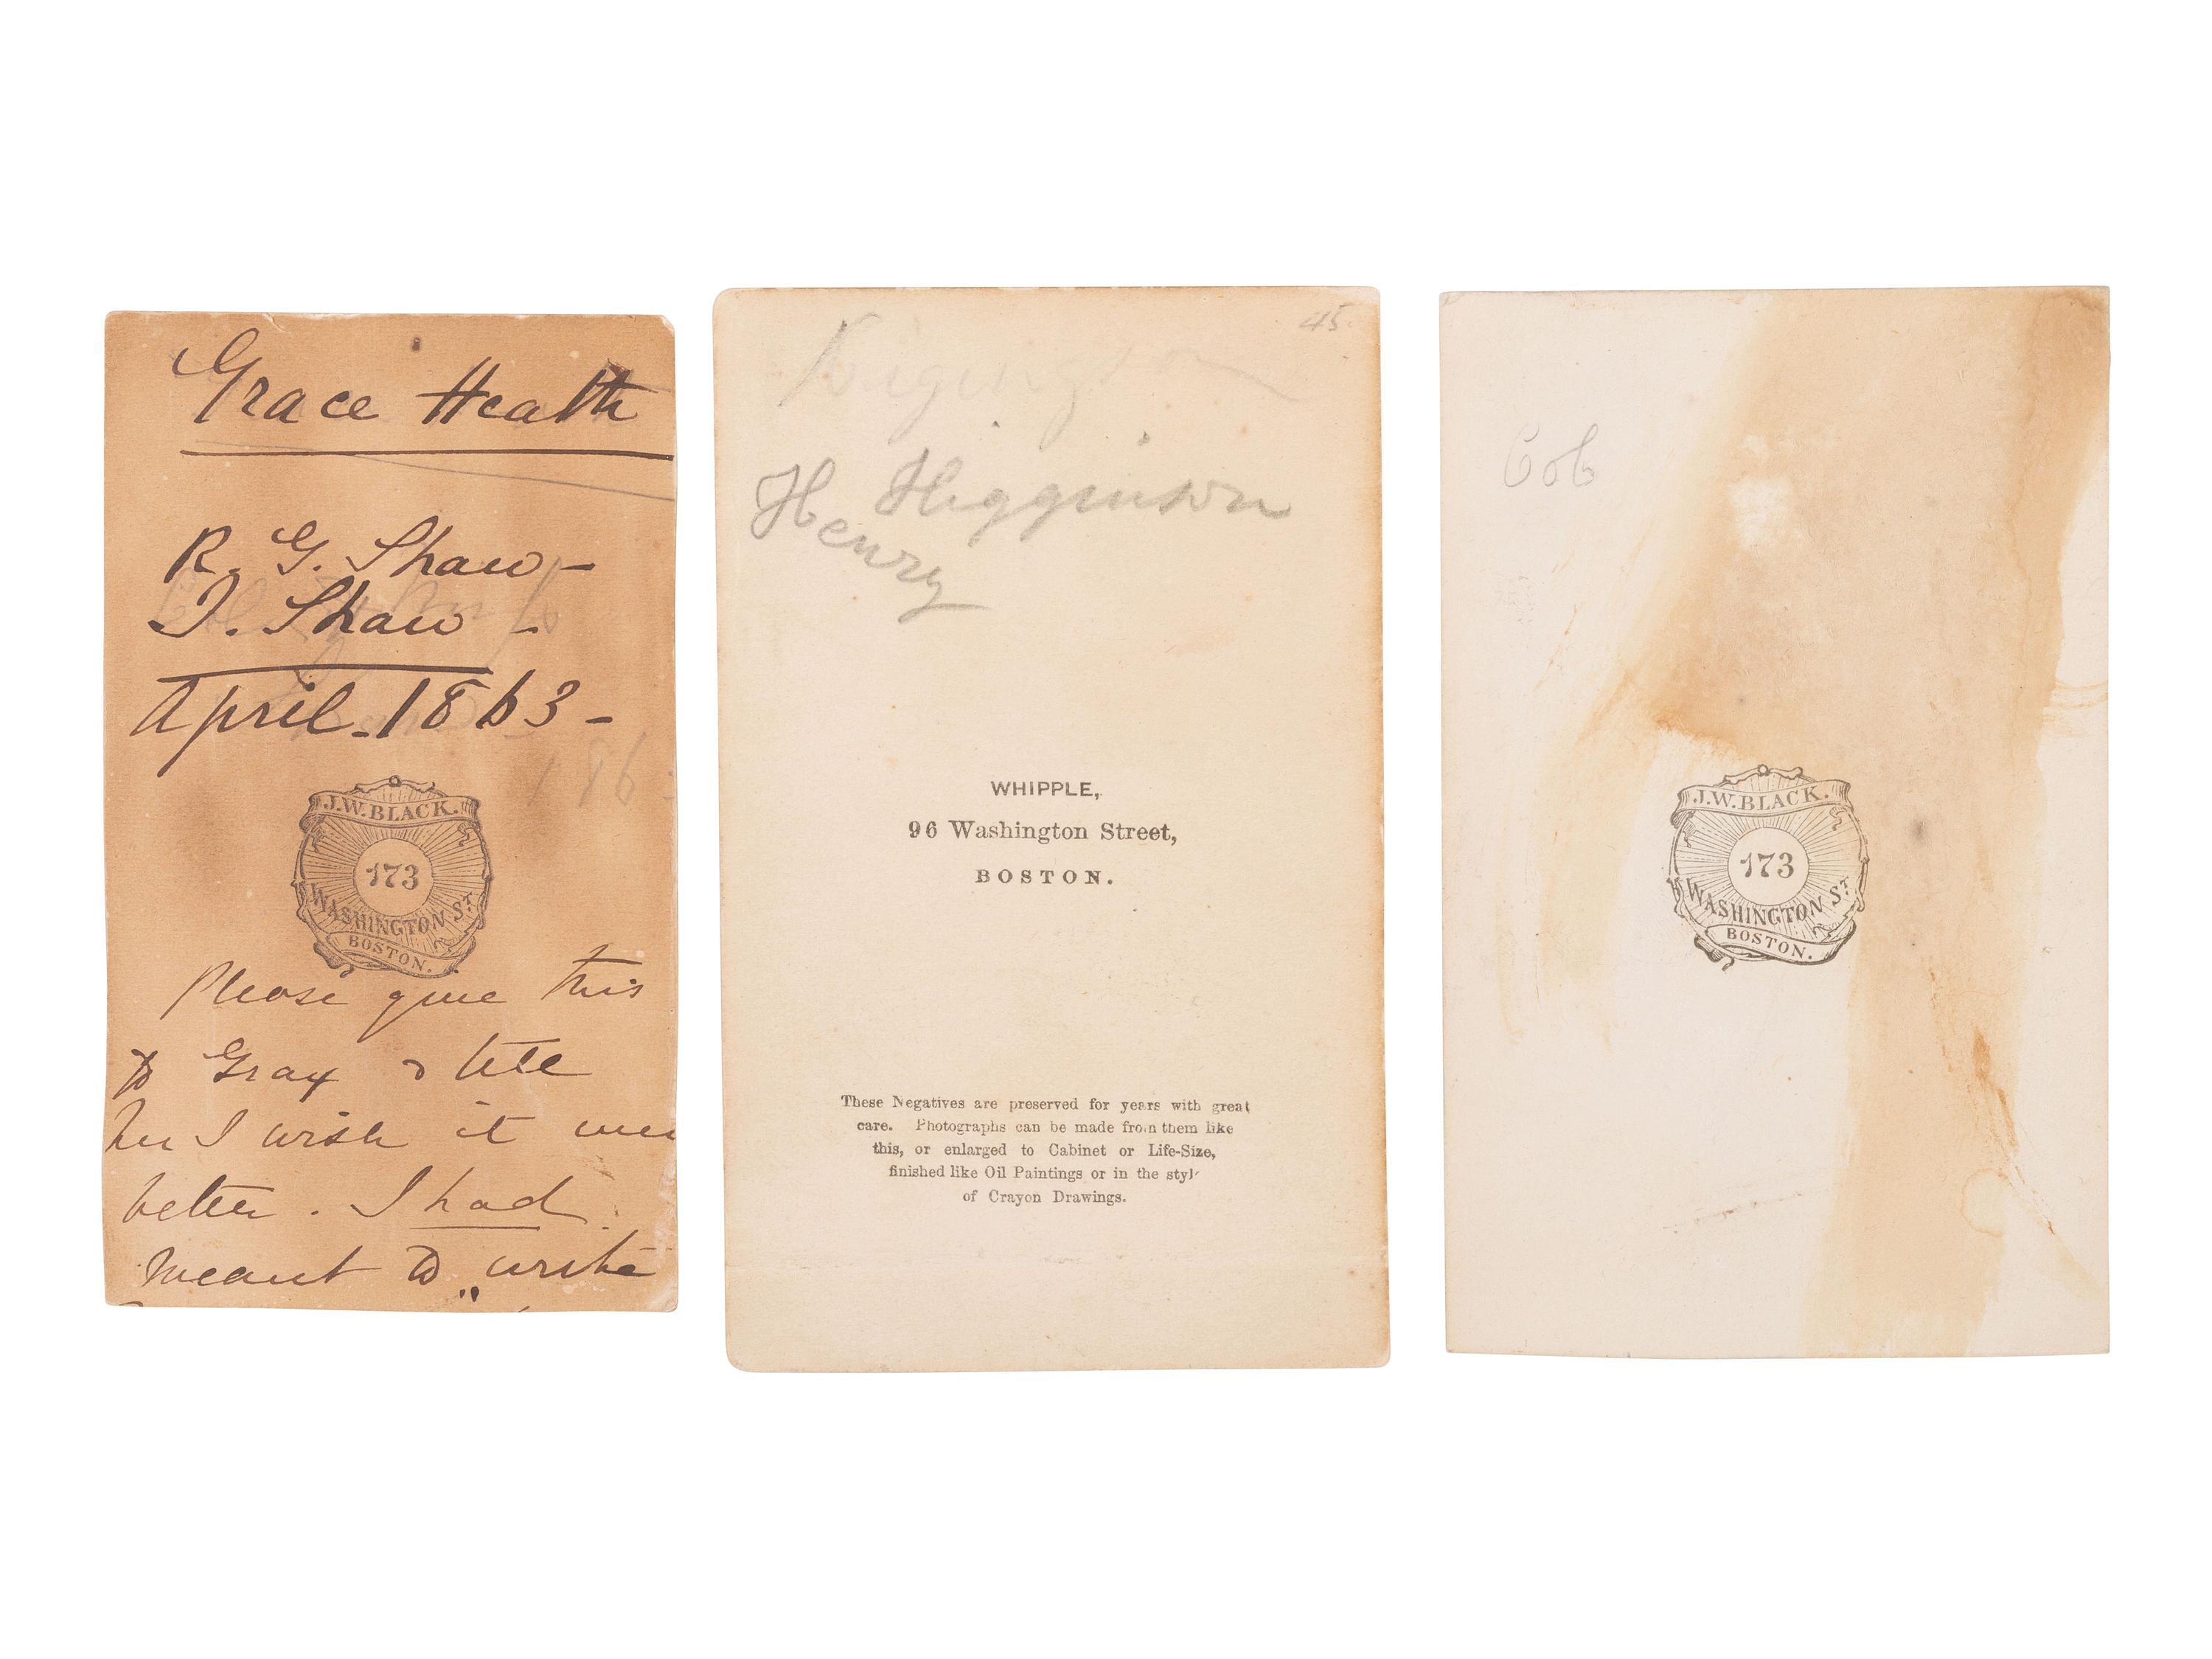 Grace Heath
R. G. Shaw –
I. Shaw –
April. 1863 –
186
J.W. BLACK.
173
WASHINGTON ST.
BOSTON.
Please give this
to Gray & tell
her I wish it were
better. I had
meant to write
45.
Higginson
Henry
WHIPPLE,
96 Washington Street,
BOSTON.
These Negatives are preserved for years with great
care. Photographs can be made from them like
this, or enlarged to Cabinet or Life-Size,
finished like Oil Paintings or in the style
of Crayon Drawings.
J.W. BLACK.
173
WASHINGTON ST.
BOSTON.